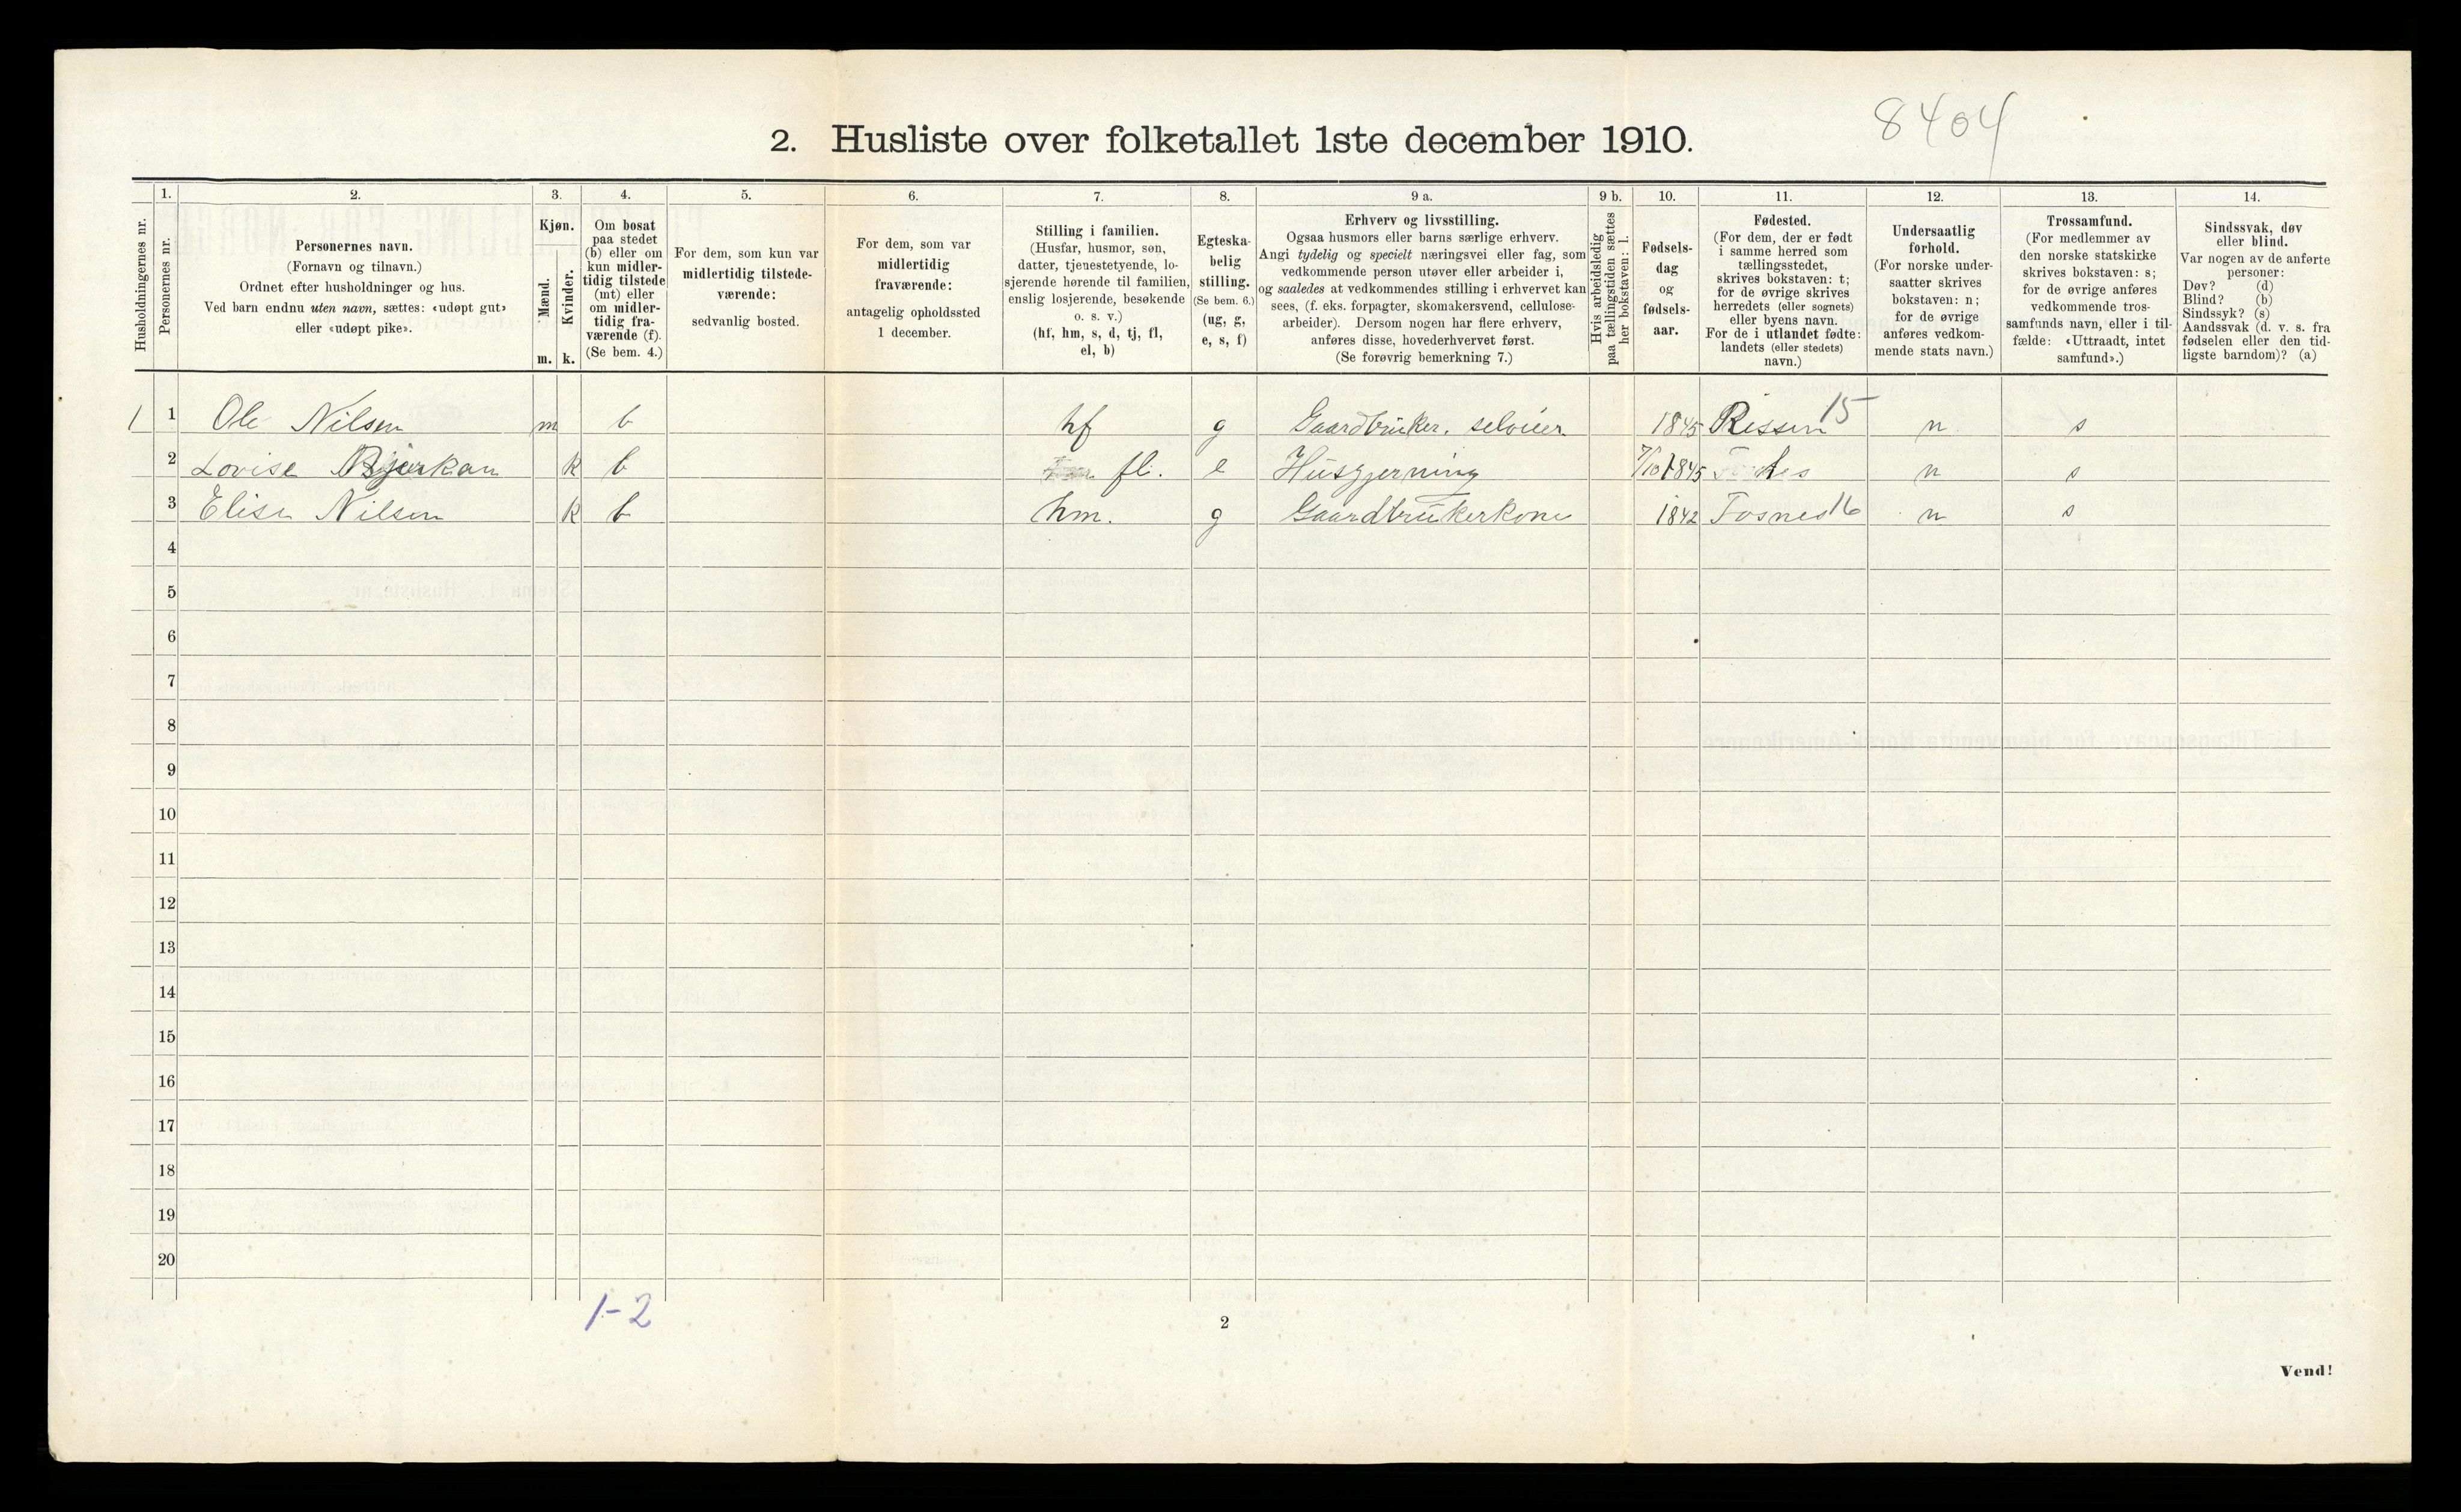 8404
2. Husliste over folketallet 1ste december 1910.
Husholdningernes nr.
1.
Personernes nr.
2.
Personernes navn.
(Fornavn og tilnavn.)
Ordnet efter husholdninger og hus.
Ved barn endnu uten navn, sættes: «udøpt gut»
eller «udøpt pike».
3.
Kjøn.
Mænd.
m.
Kvinder.
k.
4.
Om bosat
paa stedet
(b) eller om
kun midler-
tidig tilstede
(mt) eller
om midler-
tidig fra-
værende (f).
(Se bem. 4.)
5.
For dem, som kun var
midlertidig tilstede-
værende:
sedvanlig bosted.
6.
For dem, som var
midlertidig
fraværende:
antagelig opholdssted
1 december.
7.
Stilling i familien.
(Husfar, husmor, søn,
datter, tjenestetyende, lo-
sjerende hørende til familien,
enslig losjerende, besøkende
o. s. v.)
(hf, hm, s, d, tj, fl,
el, b)
8.
Egteska-
belig
stilling.
(Se bem. 6.)
(ug, g,
e, s, f)
9 a.
Erhverv og livsstilling.
Ogsaa husmors eller barns særlige erhverv.
Angi tydelig og specielt næringsvei eller fag, som
vedkommende person utøver eller arbeider i,
og saaledes at vedkommendes stilling i erhvervet kan
sees, (f. eks. forpagter, skomakersvend, cellulose-
arbeider). Dersom nogen har flere erhverv,
anføres disse, hovederhvervet først.
(Se forøvrig bemerkning 7.)
9 b.
Hvis arbeidsledig
paa tællingstiden sættes
her bokstaven: l.
10.
Fødsels-
dag
og
fødsels-
aar.
11.
Fødested.
(For dem, der er født
i samme herred som
tællingsstedet,
skrives bokstaven: t;
for de øvrige skrives
herredets (eller sognets)
eller byens navn.
For de i utlandet fødte:
landets (eller stedets)
navn.)
12.
Undersaatlig
forhold.
(For norske under-
saatter skrives
bokstaven: n;
for de øvrige
anføres vedkom-
mende stats navn.)
13.
Trossamfund.
(For medlemmer av
den norske statskirke
skrives bokstaven: s;
for de øvrige anføres
vedkommende tros-
samfunds navn, eller i til-
fælde: «Uttraadt, intet
samfund».)
14.
Sindssvak, døv
eller blind.
Var nogen av de anførte
personer:
Døv? (d)
Blind? (b)
Sindssyk? (s)
Aandssvak (d. v. s. fra
fødselen eller den tid-
ligste barndom)? (a)
1 1 Ole Nilsen m b hf g Gaardbruker, selveier 1845 Rissen 15 n s
2 Lovise Bjørkan k b fl. e Husgjerning 7/10 1845 n s
3 Elise Nilsen k b hm. g Gaardbrukerkone 1842 Fosnes 16 n s
4
5
6
7
8
9
10
11
12
13
14
15
16
17
18
19
20
1-2
2
Vend!